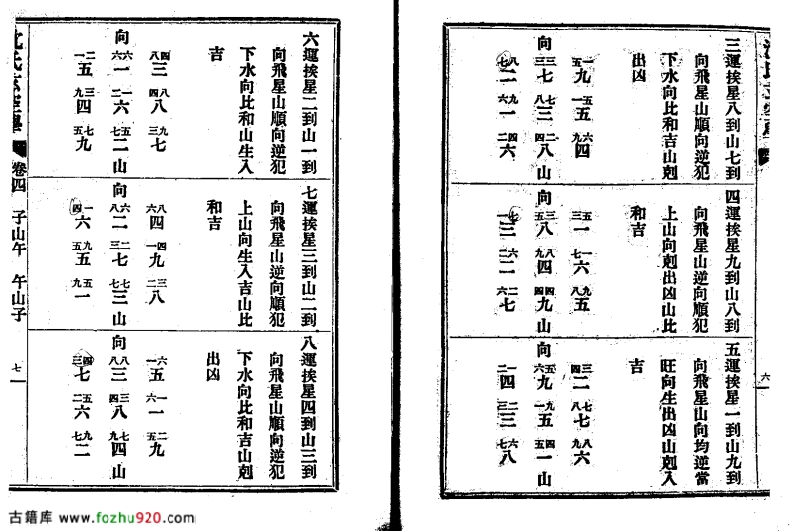 三運挨星八到山七到
向飛星山順向逆犯
下水向比和吉山剋
出凶
五一九 一五五 九六四
向 三三七 八七三 四二八 山
七八二 六九一 二四六
四運挨星九到山八到
向飛星山逆向順犯
上山向剋出凶山比
和吉
三五一 七一六 八九五
向 五三八 九八四 四四九 山
一七三 二六二 六二七
五運挨星一到山九到
向飛星山向均逆當
旺向生出凶山剋入
吉
四三二 八七七 九八六
向 六五九 一九五 五四一 山
二一四 三二三 七六八
六
六運挨星二到山一到
向飛星山順向逆犯
下水向比和山生入
吉
八四三 四八八 三九七
向 六六一 二一六 七五二 山
一二五 九三四 五七九
七運挨星三到山二到
向飛星山逆向順犯
上山向生入吉山比
和吉
六八四 一四九 二三八
向 八六二 三二七 七七三 山
四一六 五九五 九五一
八運挨星四到山三到
向飛星山順向逆犯
下水向比和吉山剋
出凶
一六五 六一一 五二九
向 八八三 四三八 九七四 山
三四七 二五六 七九二
卷四 子山午 午山子 七
古籍库 www.fozhu920.com